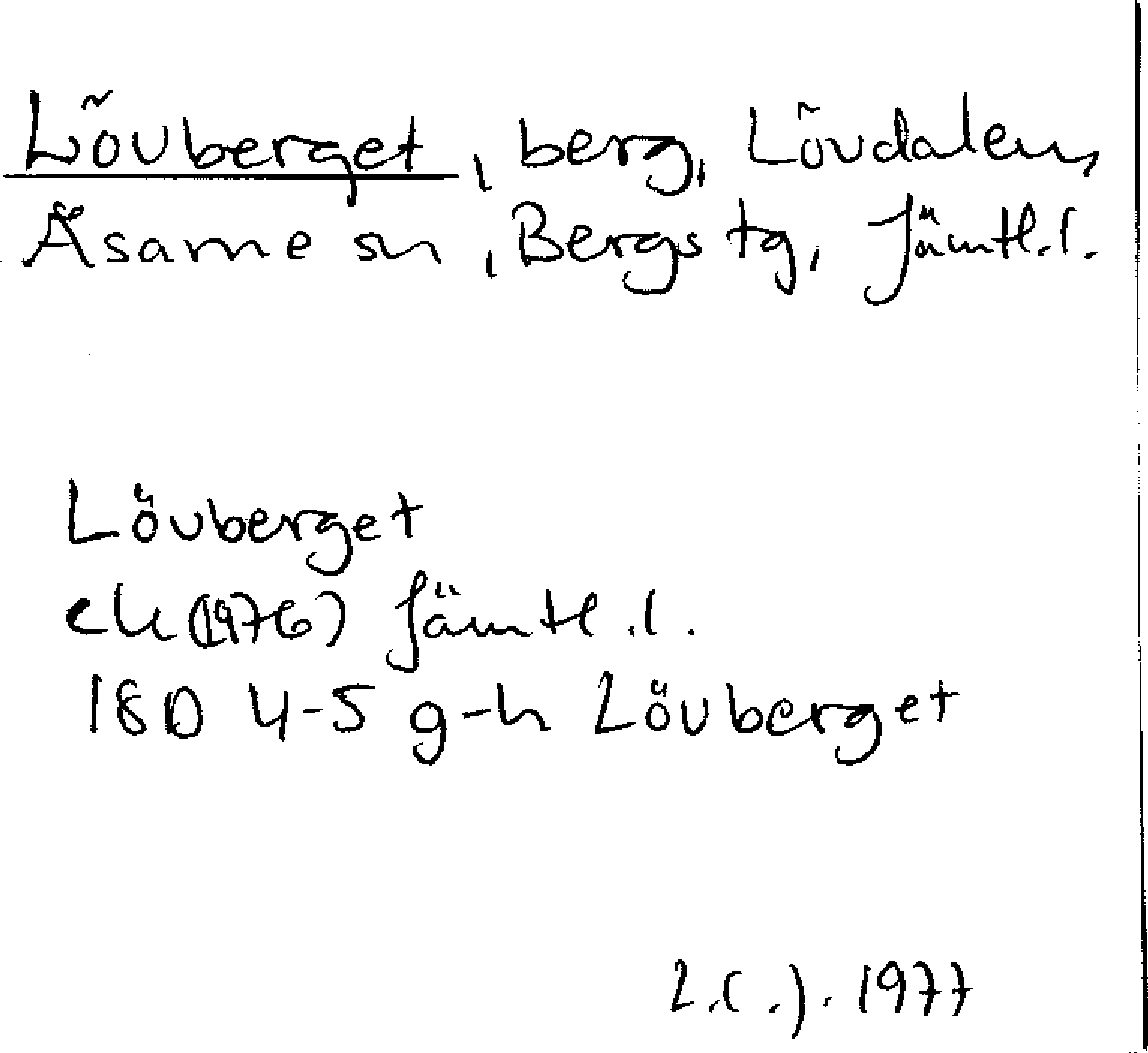 Lövberget, berg, Lövdalen,
Åsarne sn, Bergs tg, Jämtl.l.
Lövberget
ek (1976) Jämtl.l.
18D 4-5 g-h Lövberget
L.(.). 1977